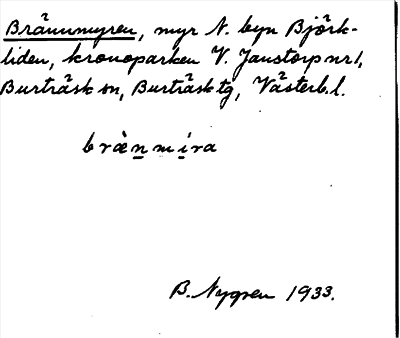 Brännmyren, myr N. byn Björk-
liden, kronoparken V. Janstorp nr 1,
Burträsk sn, Burträsk tg, Västerb. l.
bræ̀n̲mi̲ra
B. Nygren 1933.